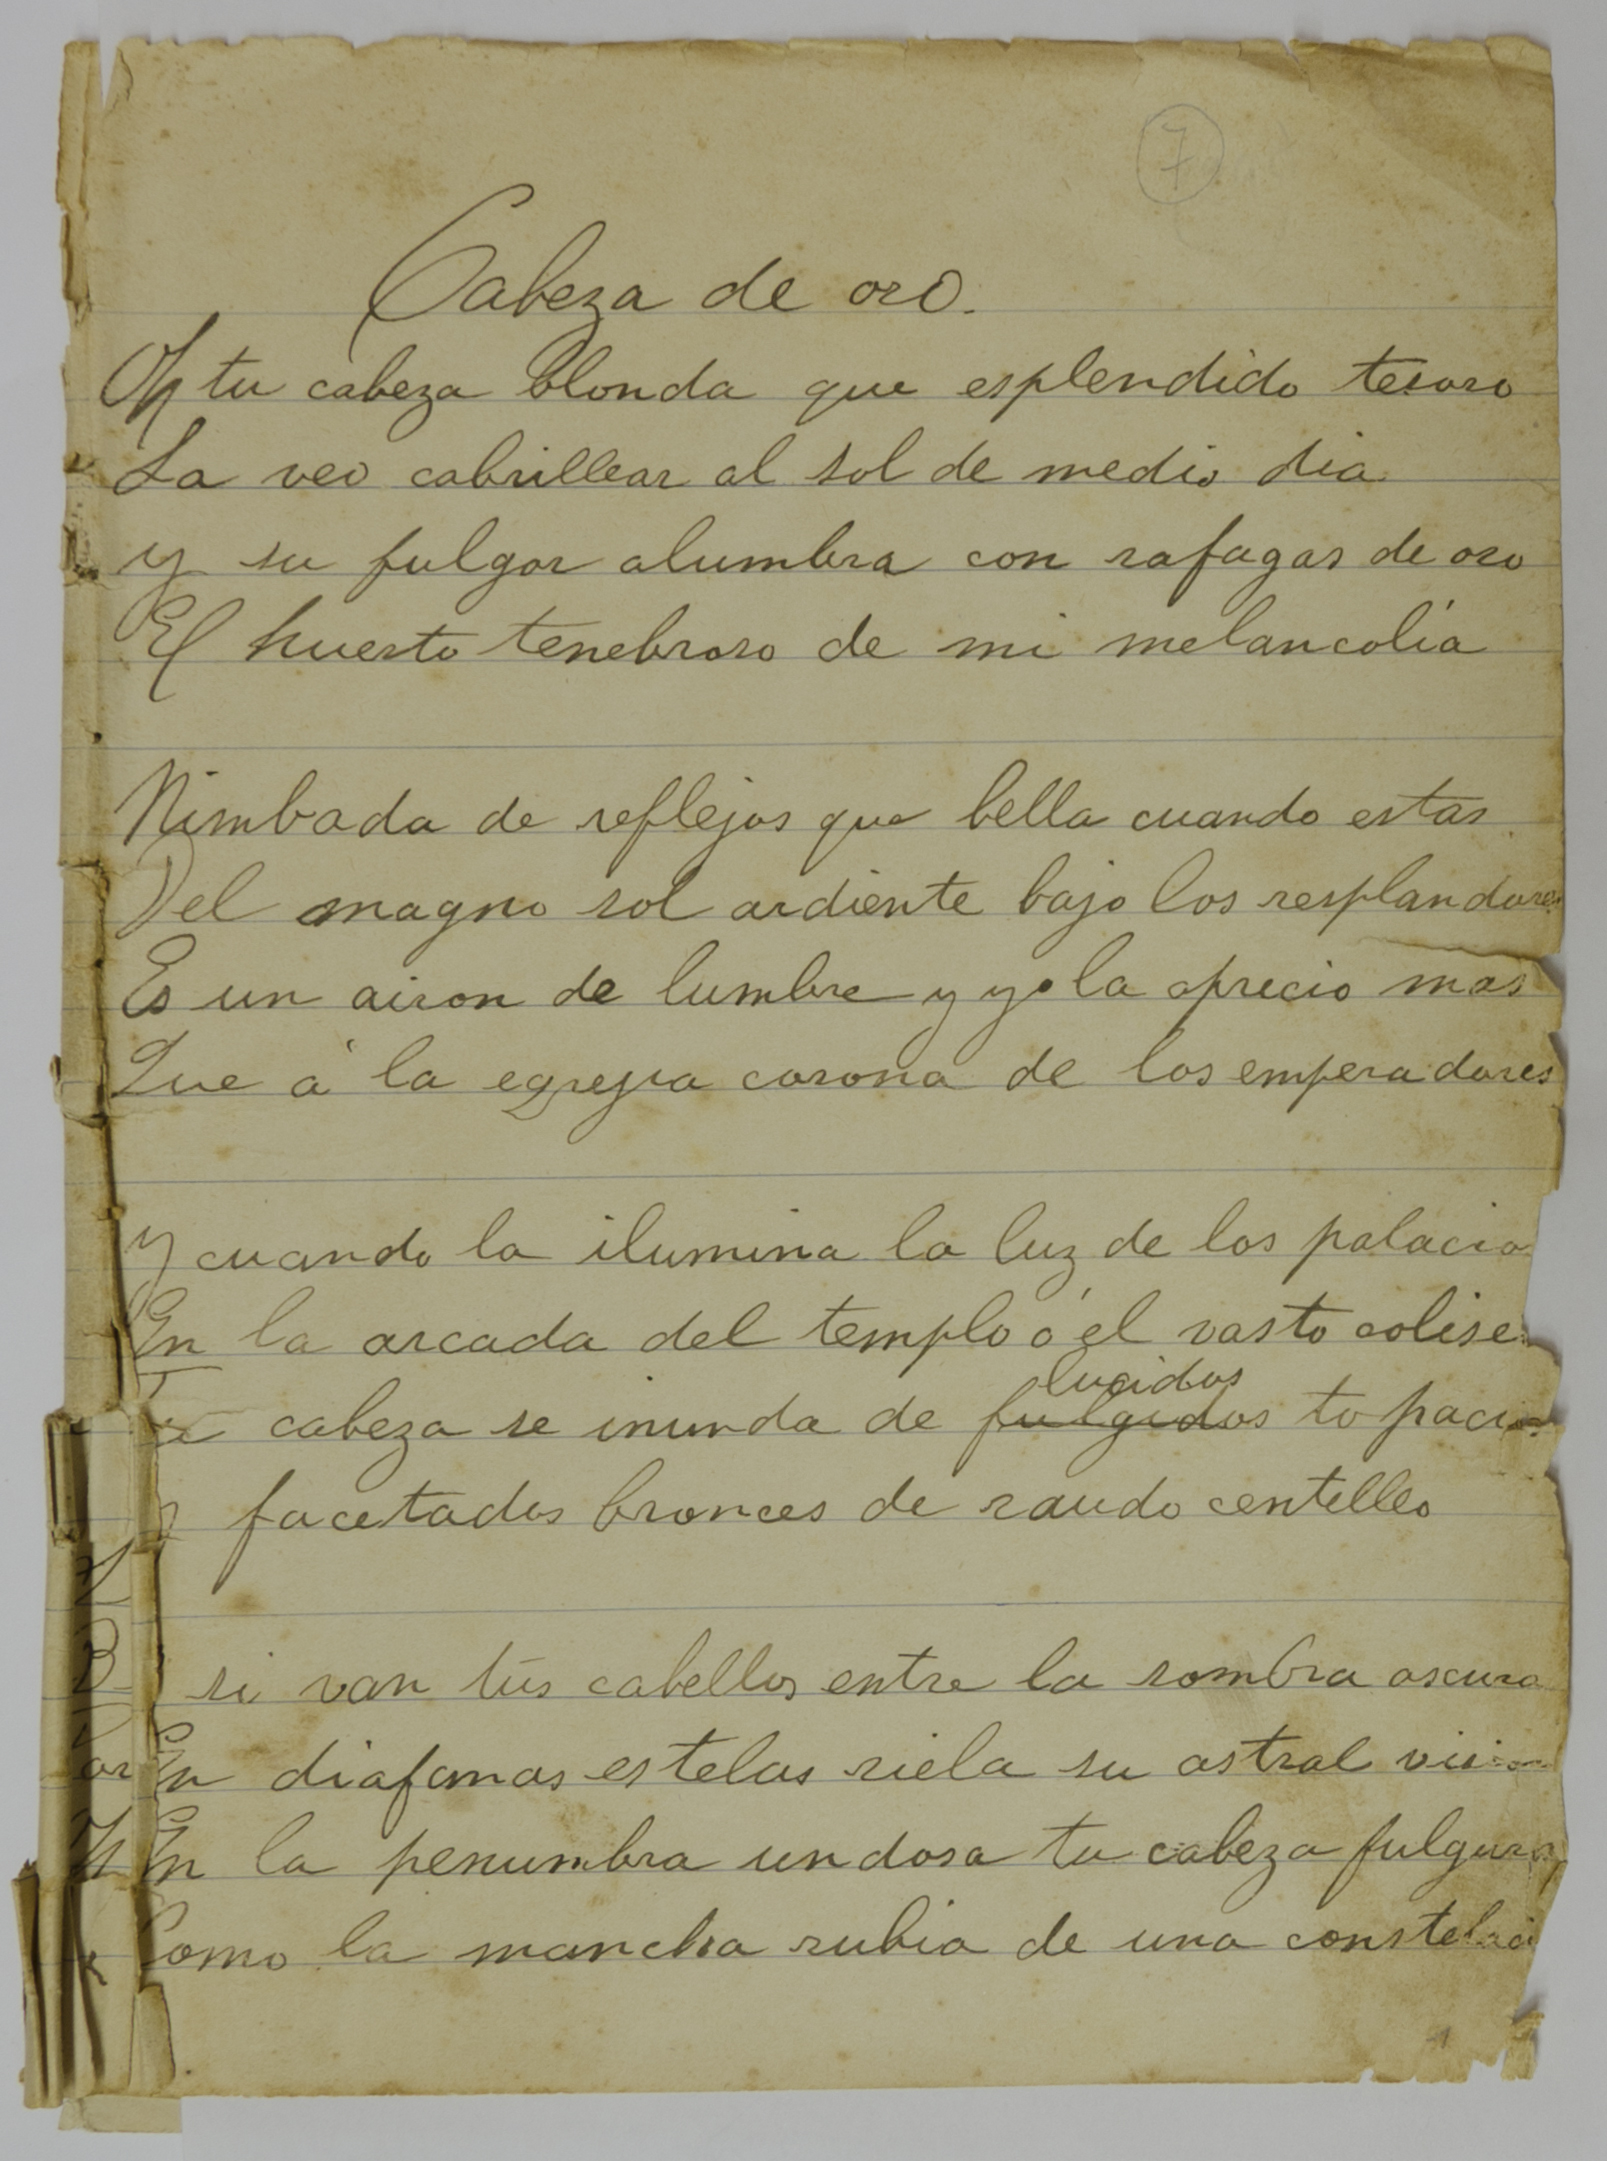 7
Cabeza de oro.
Oh tu cabeza blonda que esplendido tesoro
La veo cabrillear al sol de medio dia
y su fulgor alumbra con rafagas de oro
El huerto tenebroso de mi melancolía
Nimbada de reflejos que bella cuando estas
Del magno sol ardiente bajo los resplandores
Es un airon de lumbre y yo la aprecio mas
Que à la egregia corona de los emperadores
y cuando la ilumina la luz de los palacios
En la arcada del templo ó el vasto colise
lucidos
cabeza se inunda de fulgidos topacios
facetados bronces de raudo centelleo
si van tus cabellos entre la sombra oscura
En diafanas estelas riela su astral vision
En la penumbra undosa tu cabeza fulgura
Como la mancha rubia de una constelaci